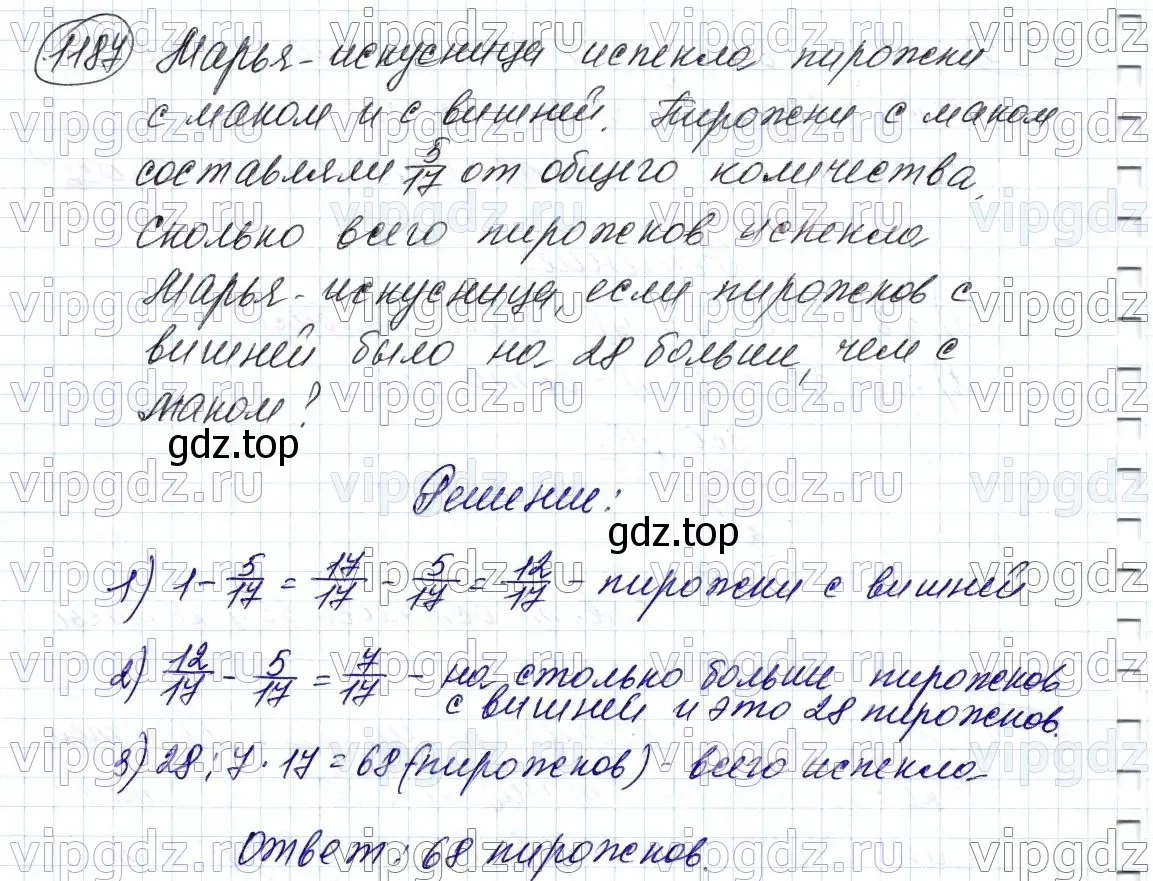 1187 Марья-искусница испекла пирожки
с маком и с вишней. Пирожки с маком
составляли 5/17 от общего количества.
Сколько всего пирожков испекла
Марья-искусница, если пирожков с
вишней было на 28 больше, чем с
маком?
gdz.top
Решение:
gdz.top
1) 1 - 5/17 = 17/17 - 5/17 = 12/17 - пирожки с вишней
2) 12/17 - 5/17 = 7/17 - на столько больше пирожков
с вишней и это 28 пирожков.
3) 28 : 7 · 17 = 68 (пирожков) - всего испекла
Ответ: 68 пирожков.
vipgdz.ru